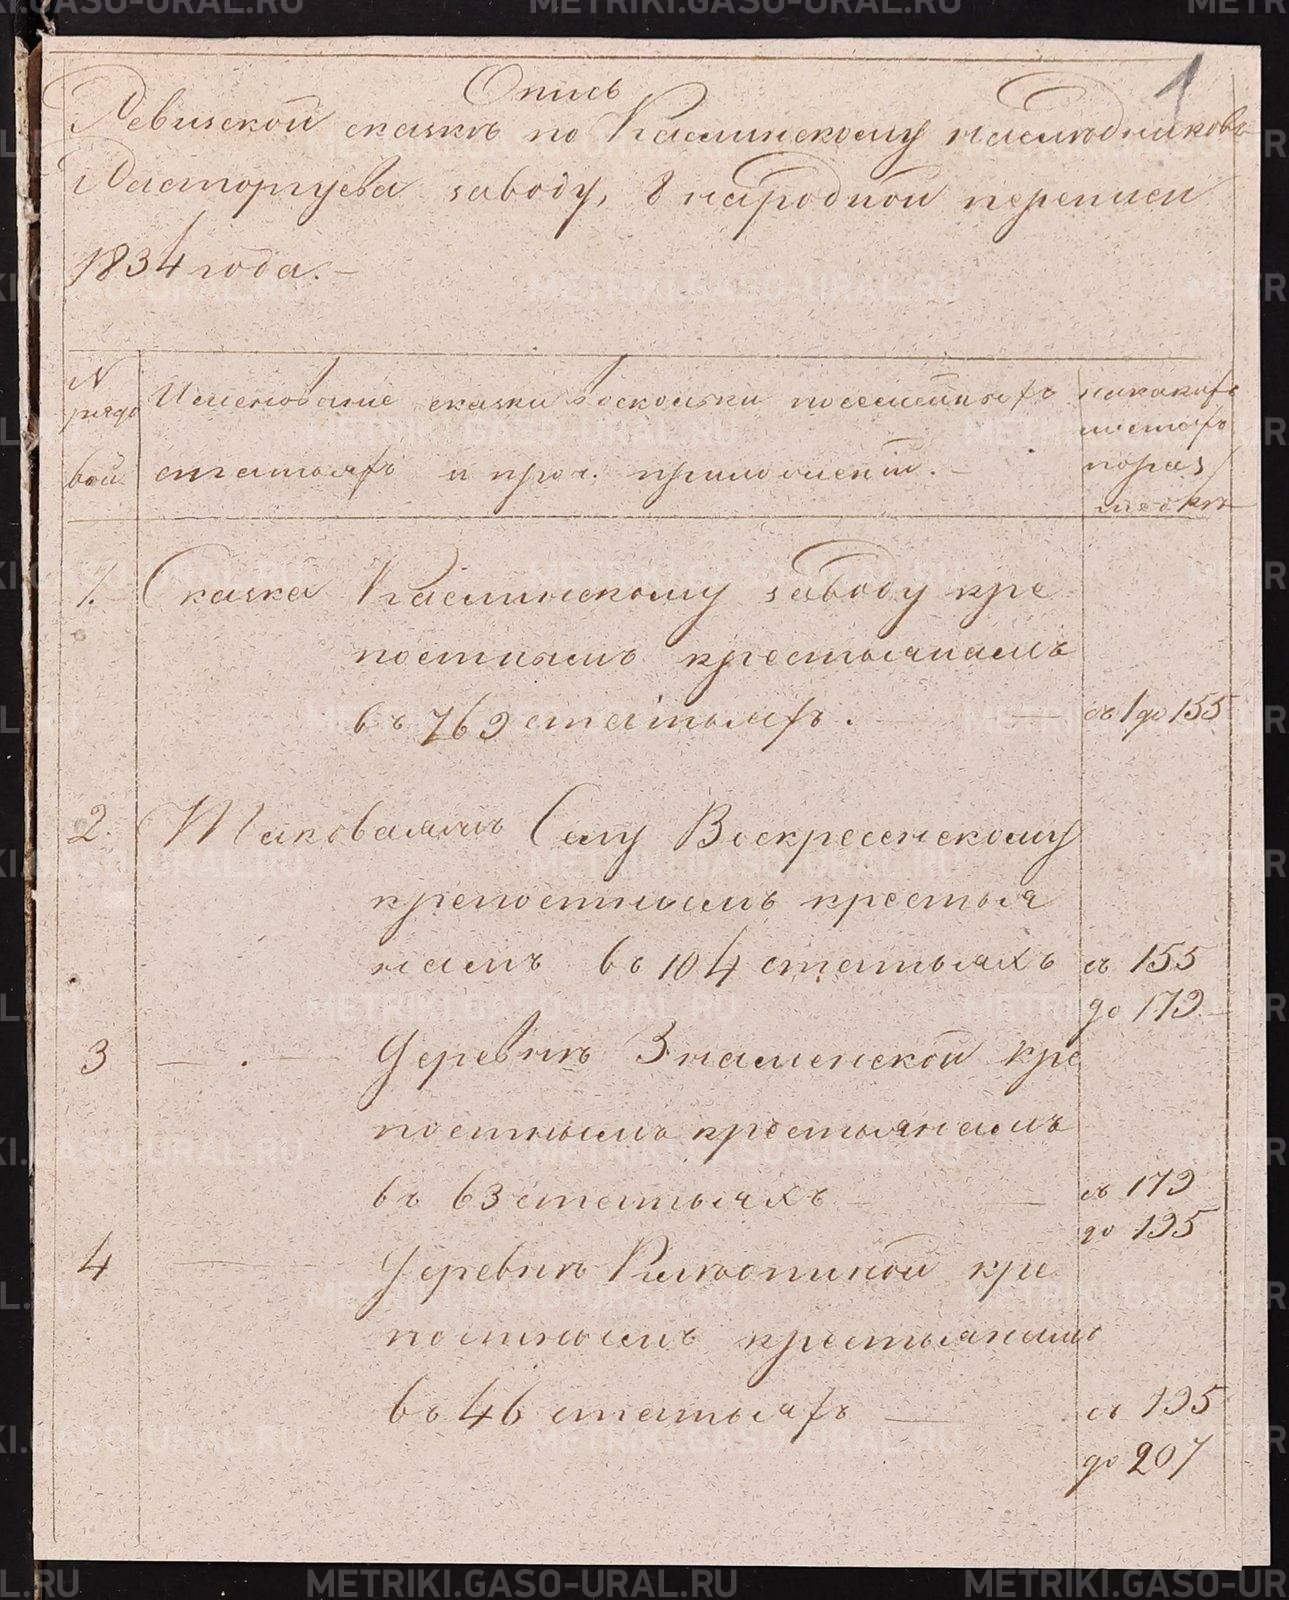 1
Опись
Ревизской сказкѣ по Каслинскому наслѣдниковъ
Расторгуева заводу, 8 народной переписи
1834 года. –
N рядовой
Именование сказки воскольки посемейныхъ
статьяхъ и проч. приложений. –
накакихъ
листахъ
по раз
меткѣ
1. Сказка Каслинскому заводу кре
постнымъ крестьянамъ
въ 769 статьяхъ. – съ 1 до 155
2. Таковаяжъ Селу Воскресенскому
крепостнымъ крестья
намъ въ 104 статьяхъ съ 155
до 179
3 – . – Деревнѣ Знаменской кре
постнымъ крестьянамъ
въ 63 статьяхъ – съ 179
до 195
4 – Деревнѣ кре
постнымъ крестьянамъ
въ 46 статьяхъ – съ 195
до 207
METRIKI.GASO-URAL.RU